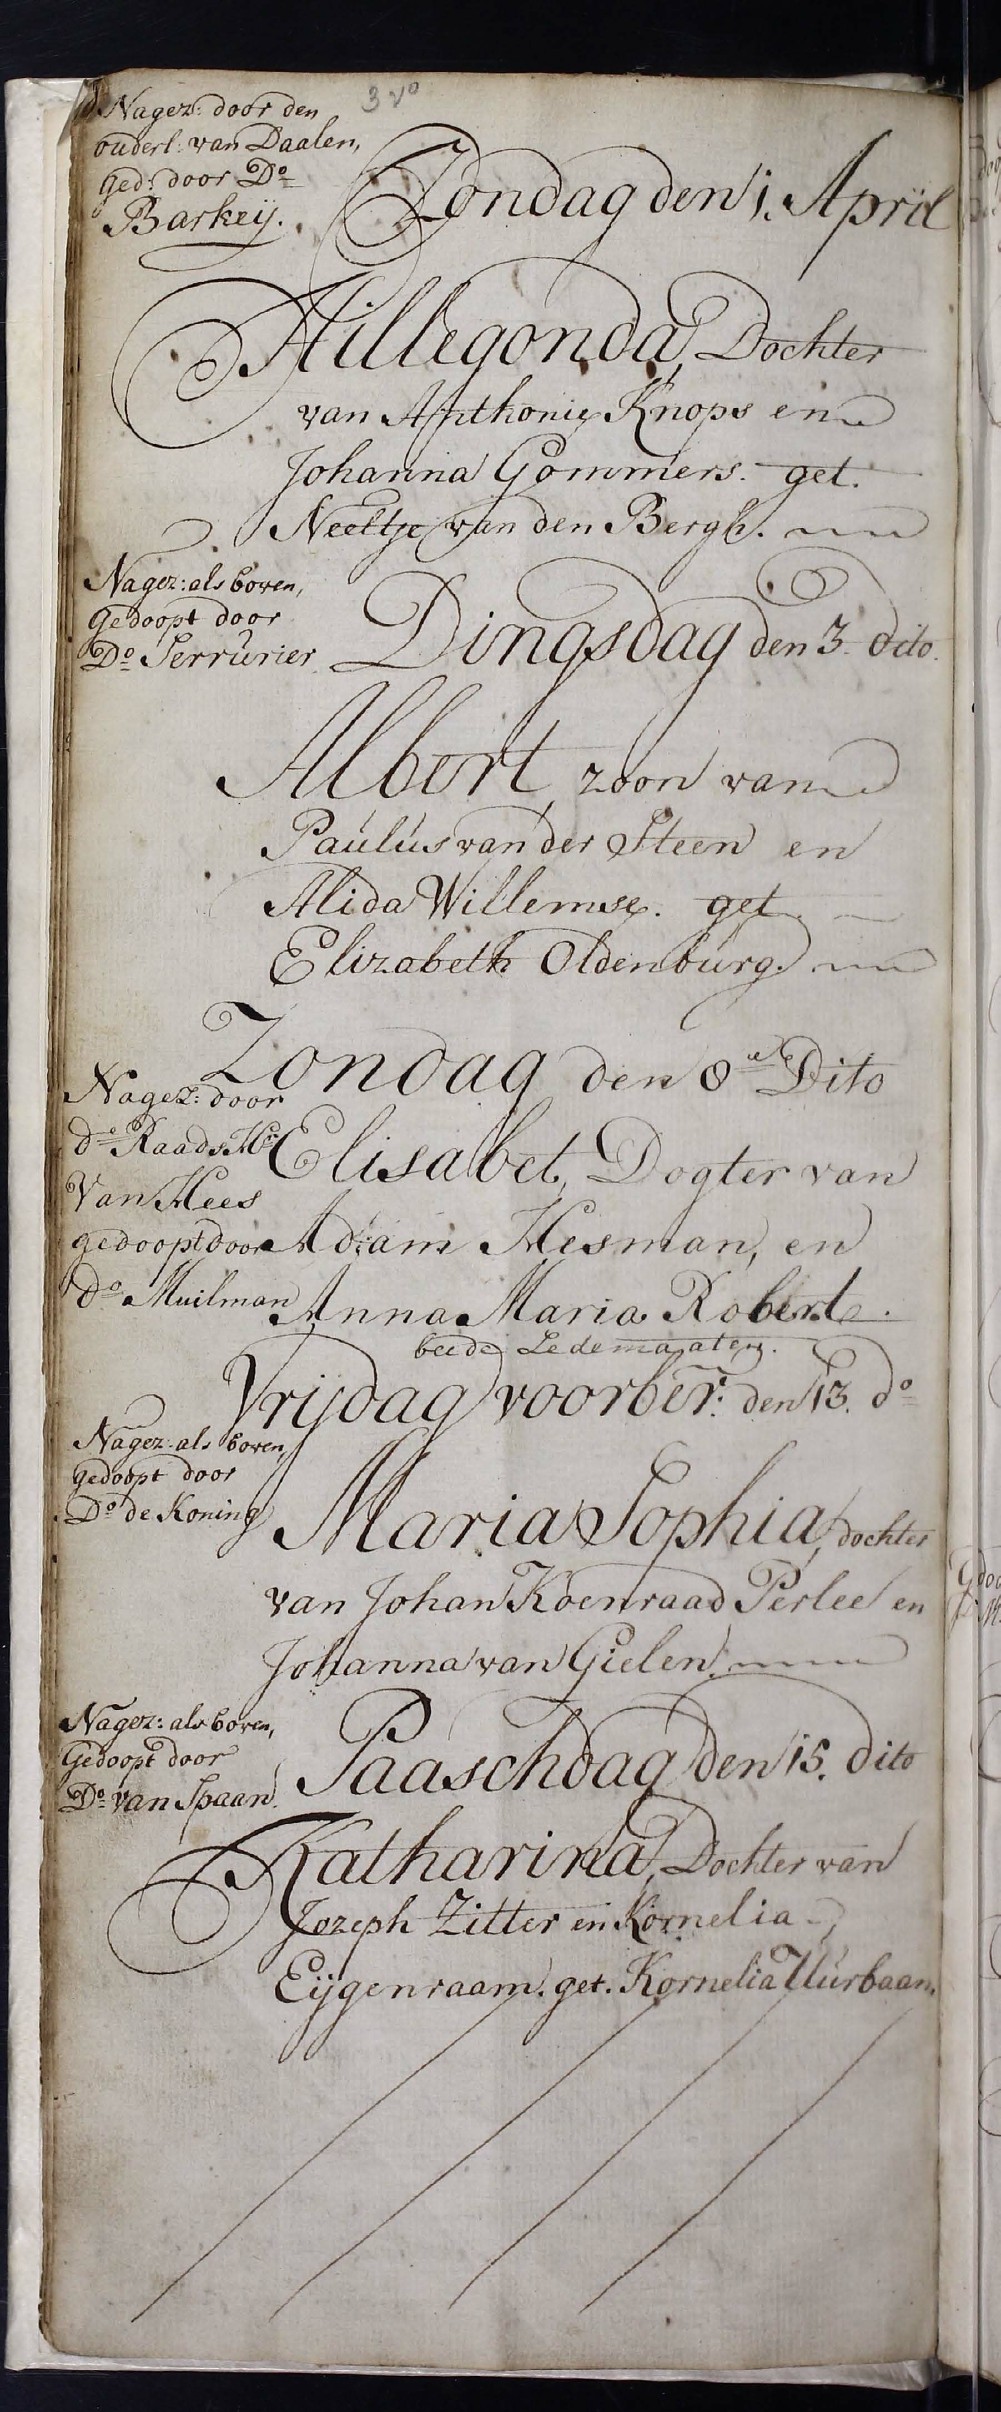 3 vo
Nagez: door den
ouderl: van Daalen,
ged: door Do
Barkeij.
Zondag den 1. April
Hillegonda, Dochter
van Anthonie Knops en
Johanna Gommers. get.
Neeltje van den Bergh.
Nagez: als boven,
gedoopt door
Do Serrurier
Dingsdag den 3. dito.
Albert, zoon van
Paulus van der Steen en
Alida Willemse. get.
Elizabeth Oldenburg.
Zondag den 8 Dito
Nagez: door
do Raads Hr
Van Hees
gedoopt door
do Muilman
Elisabet, Dogter van
Adam Hesman, en
Anna Maria Robert.
beide Ledemaaten.
Vrijdag voorber: den 13. do
Nagez: als boven,
gedoopt door
Do de Koning
Maria Sophia, dochter
van Johan Koenraad Perlee en
Johanna van Gielen.
Nagez: als boven,
Gedoopt door
Do van Spaan.
Paaschdag den 15. dito
Katharina, Dochter van
Jozeph Zitter en Kornelia
Eijgenraam. get. Kornelia Uurbaan.